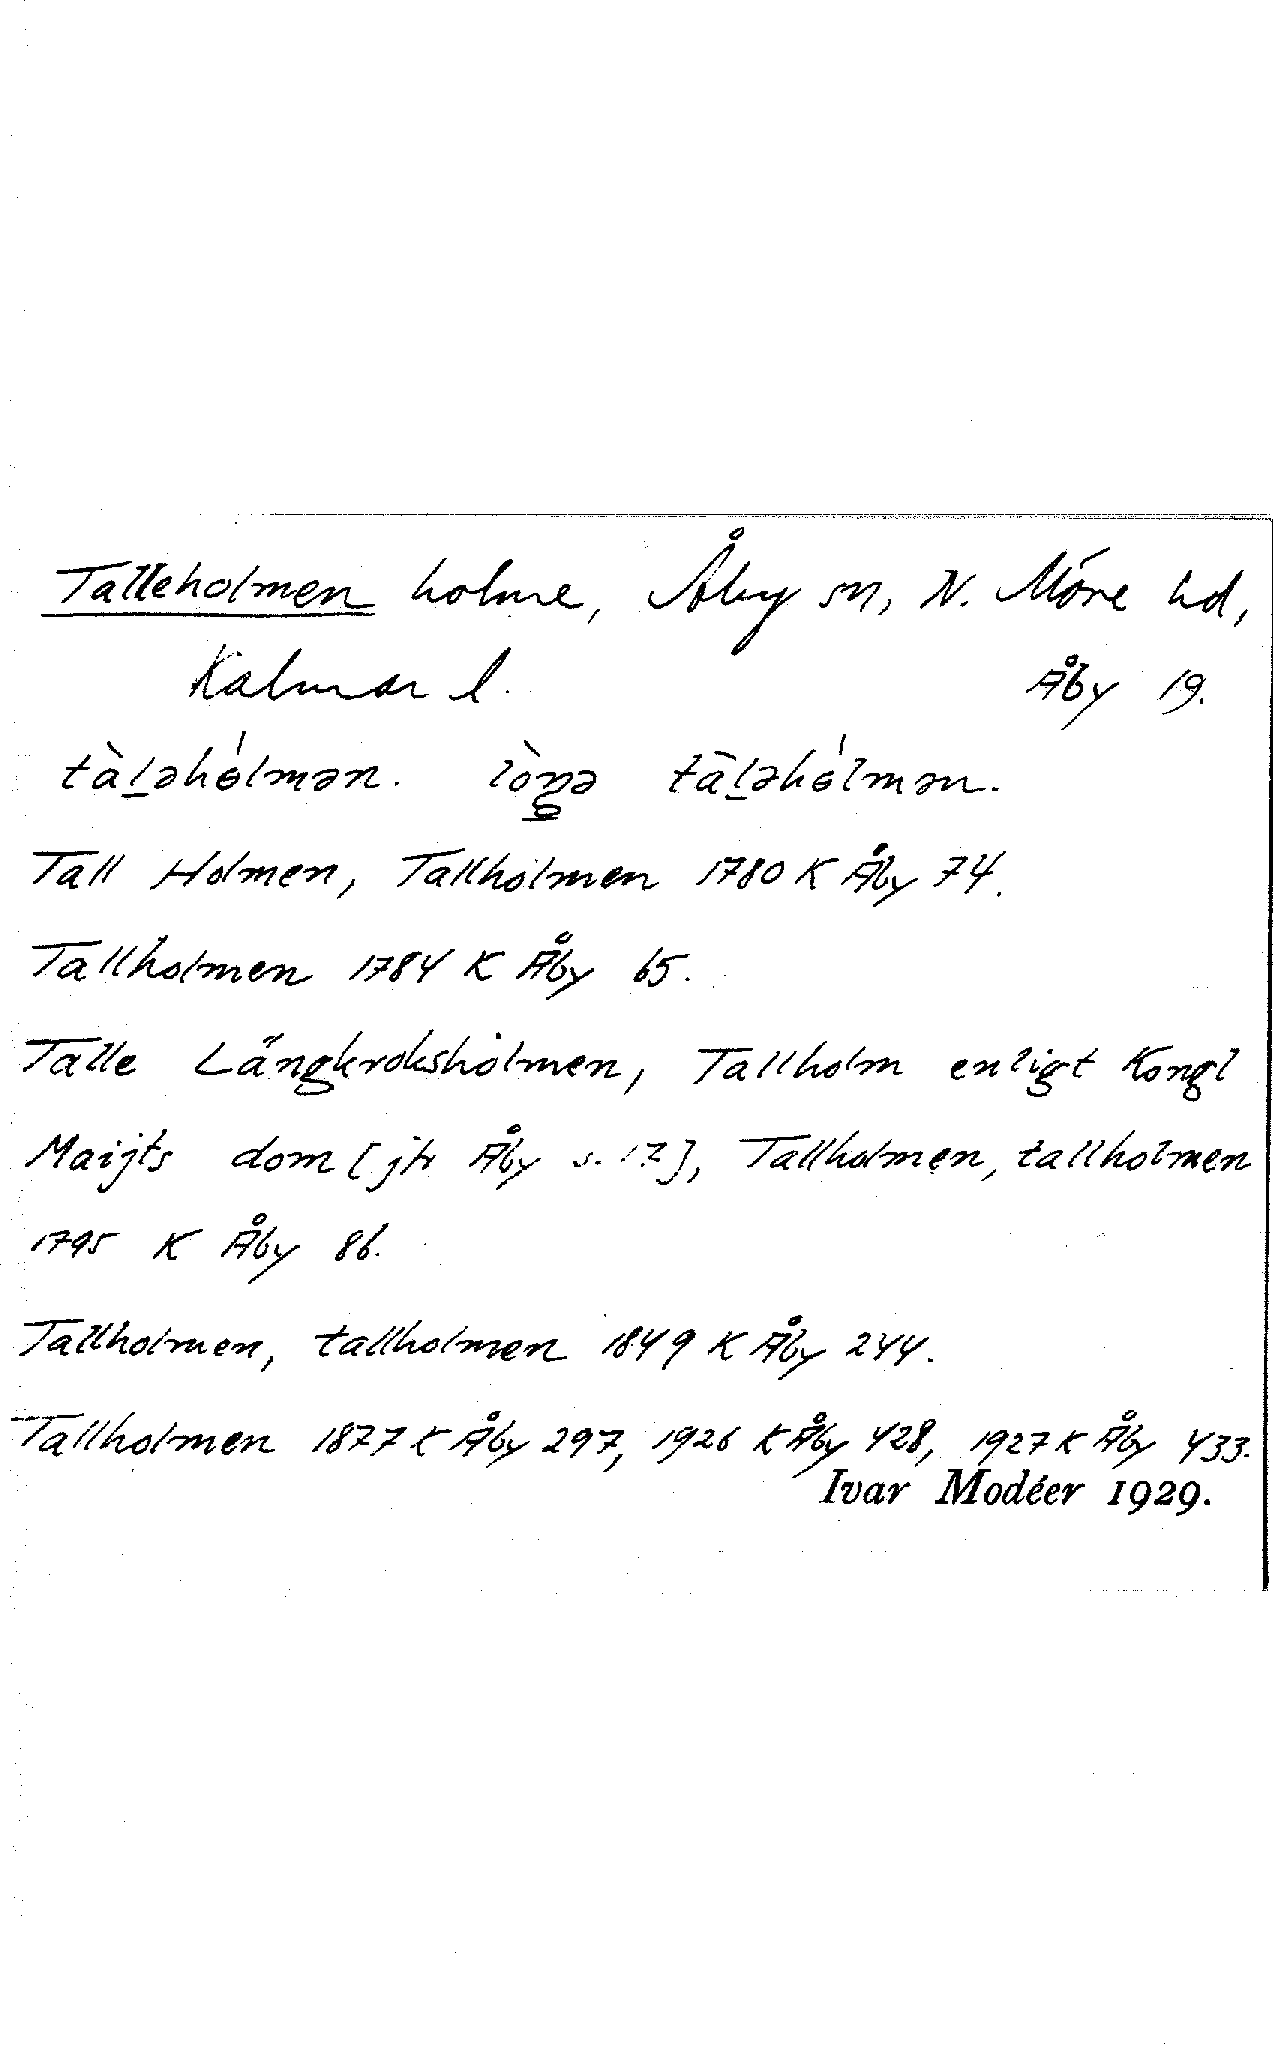 Talleholmen holme, Åby sn, N. Möre hd,
Kalmar l. Åby 19.
tàl̠əhólmən. lòŋə tàl̠əhólmən.
Tall Holmen, Tallholmen 1780 K Åby 74.
Tallholmen 1784 K Åby 65.
Talle Långkroksholmen, Tallholm enligt Kongl
Maijts dom [jfr Åby s. 17], Tallholmen, tallholmen
1795 K Åby 86.
Tallholmen, tallholmen 1849 K Åby 244.
Tallholmen 1877 K Åby 297, 1926 K Åby 428, 1927 K Åby 433.
Ivar Modéer 1929.